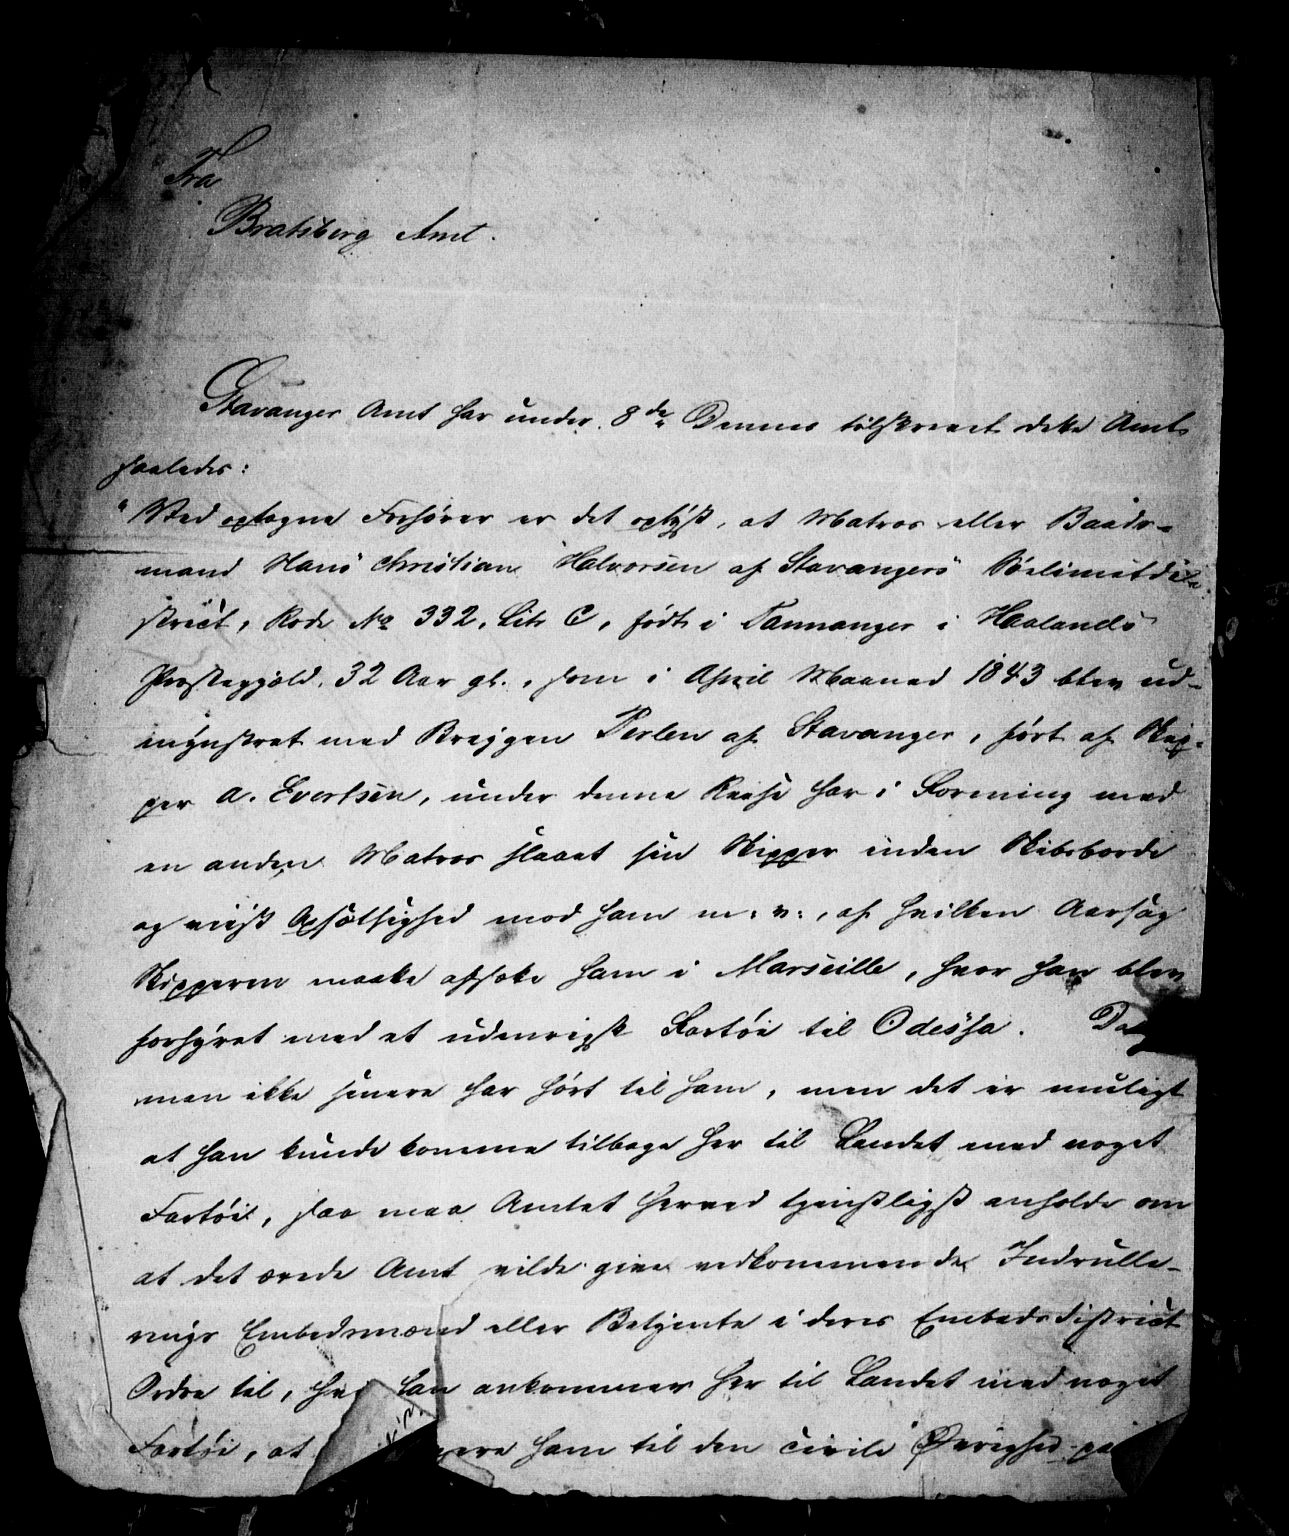 Fra
Bratsberg Amt.
Stavanger Amt har under 8de Dennes tilskrevet dette Amt
saaledes:
"Ved optagne Forhører er det oplyst, at Matros eller Baads-
mand Hans Christian Halvorsen af Stavangers Sølimitdi-
strict, Rode No 332, Litr C, født i Tannanger i Haalands
Præstegjæld, 32 Aar gl., som i April Maaned 1843 blev ud-
mynstret med Briggen Perlen af Stavanger, ført af Skip-
per A. Evertsen, under denne Reise har i Forening med
en anden Matros slaaet sin Skipper inden Skibsborde
og viist Opsætsighed mod ham m: v:, af hvilken Aarsag
Skipperen maatte afsætte ham i Marseille, hvor han blev
forhyret med et udenrigsk Fartøi til Odessa. Da
man ikke senere har hørt til ham, men det er muligt
at han kunde komme tilbage her til Landet med noget
Fartøi, saa maa Amtet herved tjenstligst anholde om
at det ærede Amt vilde give vedkommende Indrulle-
rings Embedsmænd eller Betjente i deres Embedsdistrict
Ordre til, han ankommer her til Landet med noget
Fartøi, at ham til den civile Øvrighed paa